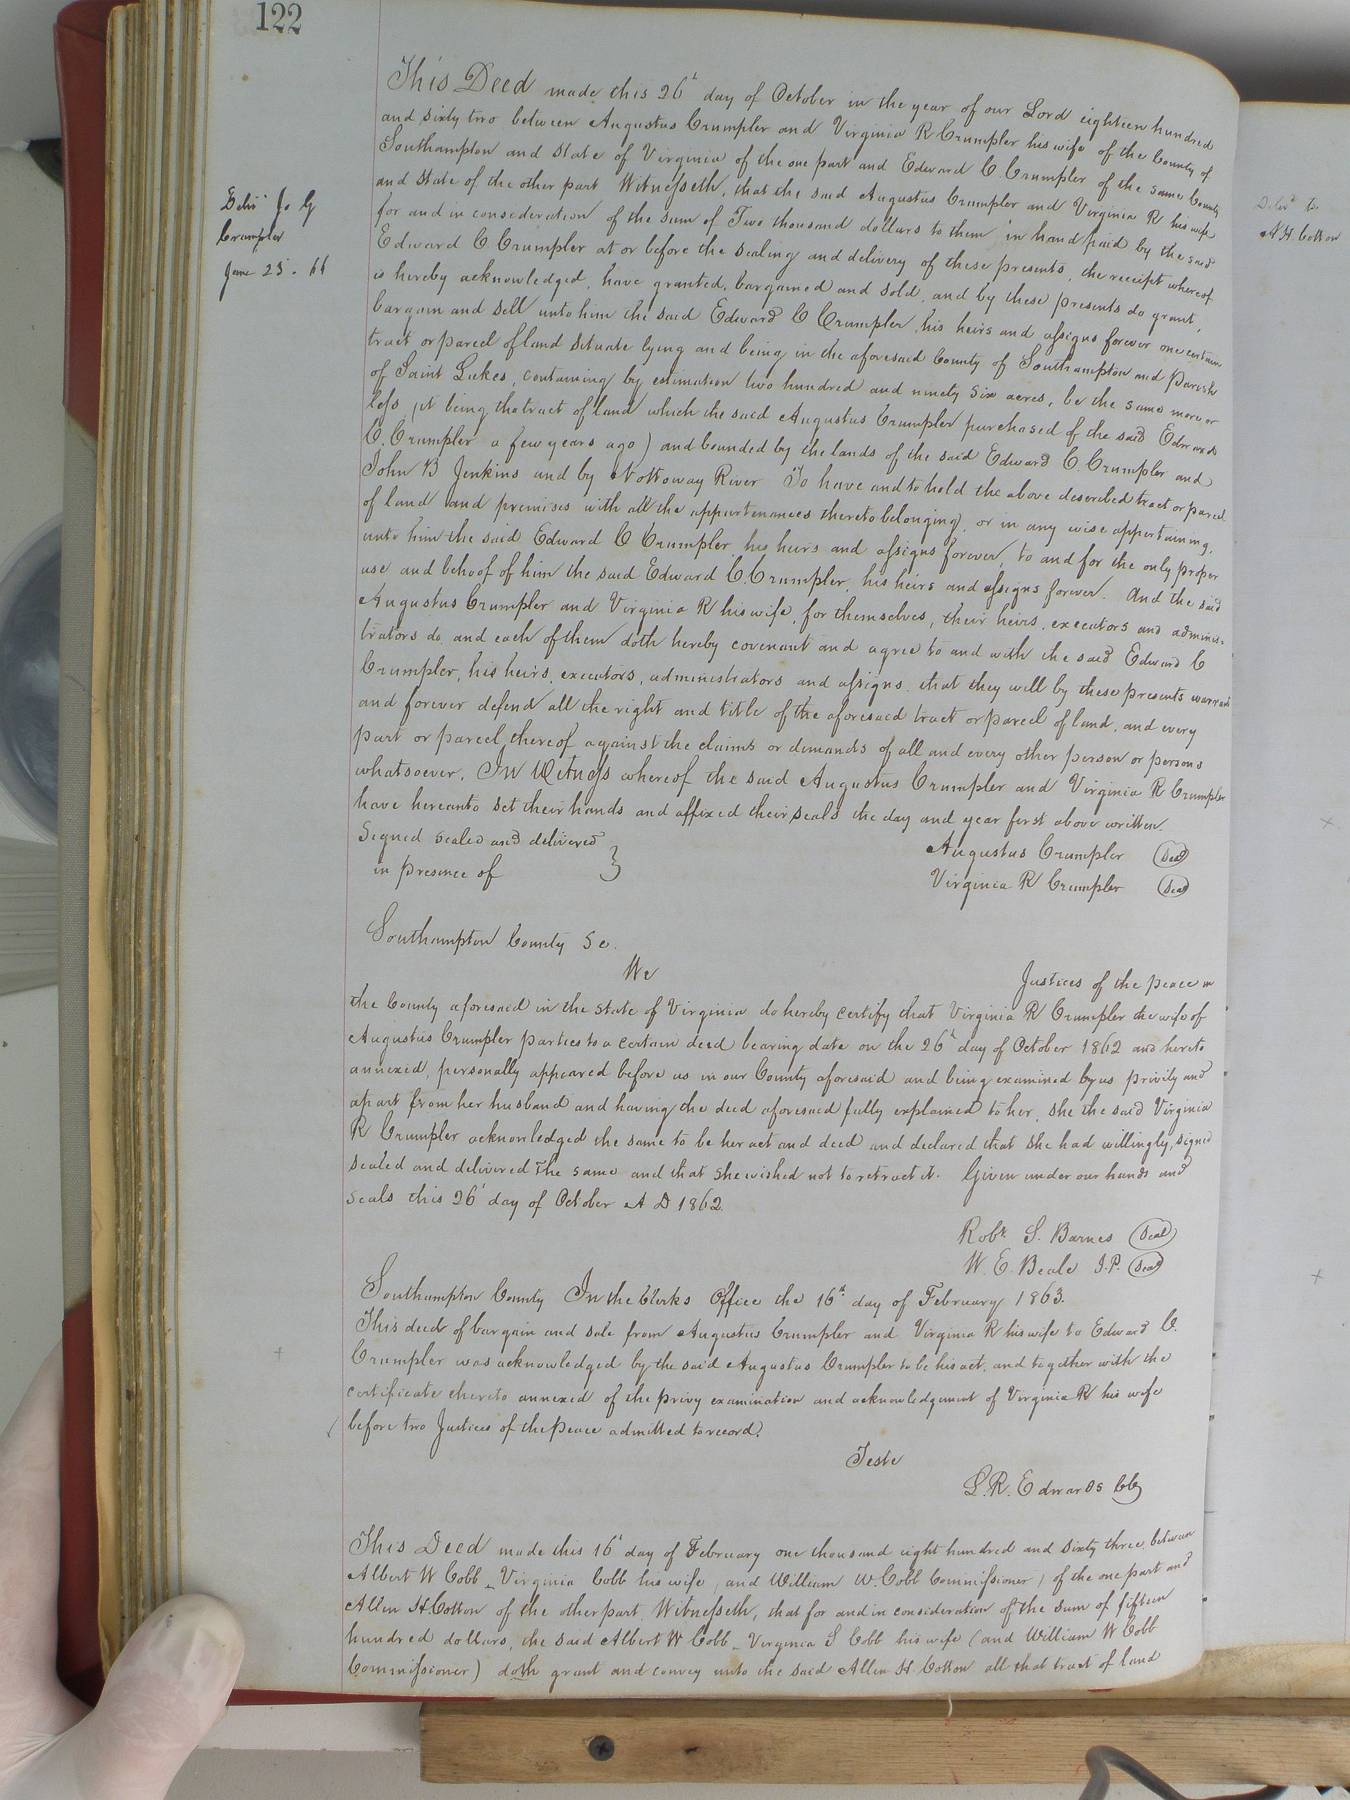 122
This Deed made this 26th day of October in the year of our Lord eighteen hundred
and sixty two between Augustus Crumpler and Virginia R Crumpler his wife of the County of
Southampton and State of Virginia of the one part and Edward C. Crumpler of the same County
and State of the other part Witnesseth, that the said Augustus Crumpler and Virginia R his wife
for and in consideration of the sum of Two thousand dollars to them in hand paid by the said
Edward C Crumpler at or before the sealing and delivery of these presents, the receipt whereof
is hereby acknowledged, have granted, bargained and sold, and by these presents do grant,
bargain and sell unto him the said Edward C Crumpler, his heirs and assigns forever one certain
tract or parcel of land situate lying and being in the aforesaid County of Southampton and Parish
of Saint Lukes, containing by estimation two hundred and ninety six acres, be the same more or
less, (it being the tract of land which the said Augustus Crumpler purchased of the said Edward
C. Crumpler a few years ago) and bounded by the lands of the said Edward C. Crumpler and
John B Jenkins and by Nottoway River To have and to hold the above described tract or parcel
of land and premises with all the appurtenances thereto belonging, or in any wise appertaining,
unto him the said Edward C Crumpler his heirs and assigns forever, to and for the only proper
use and behoof of him the said Edward C. Crumpler, his heirs and assigns forever. And the said
Augustus Crumpler and Virginia R his wife, for themselves, their heirs, executors and adminis-
trators do and each of them doth hereby covenant and agree to and with the said Edward C
Crumpler, his heirs, executors, administrators and assigns, that they will by these presents warrant
and forever defend all the right and title of the aforesaid tract or parcel of land, and every
part or parcel, thereof against the claims or demands of all and every other person or persons
whatsoever. In Witness whereof the said Augustus Crumpler and Virginia R Crumpler
have hereunto set their hands and affixed their seals the day and year first above written.
Signed sealed and delivered
in presence of
Augustus Crumpler Seal
Virginia R Crumpler Seal
Delivd Jo G
Crumpler
June 25. 66
Southampton County Sc.
We Justices of the peace in
the County aforesaid in the State of Virginia do hereby certify that Virginia R Crumpler the wife of
Augustus Crumpler parties to a certain deed bearing date on the 26th day of October 1862 and hereto
annexed, personally appeared before us in our County aforesaid and being examined by us privily and
apart from her husband and having the deed aforesaid fully explained to her, she the said Virginia
R Crumpler acknowledged the same to be her act and deed and declared that she had willingly, signed
sealed and delivered the same and that she wished not to retract it. Given under our hands and
seals this 26' day of October A D 1862.
Robt. S. Barnes Seal
W. E. Beale J.P. Seal
Southampton County In the Clerks Office the 16th day of February 1863.
This deed of bargain and sale from Augustus Crumpler and Virginia R his wife to Edward C.
Crumpler was acknowledged by the said Augustus Crumpler to be his act, and together with the
certificate thereto annexed of the privy examination and acknowledgment of Virginia R his wife
before two Justices of the Peace admitted to record.
Teste
L. R. Edwards Clk
This Deed made this 16' day of February one thousand eight hundred and sixty three, between
Albert W Cobb Virginia Cobb his wife, and William W. Cobb Commissioner) of the one part and
Allen H Cotton of the other part Witnesseth, that for and in consideration of the sum of fifteen
hundred dollars, the said Albert W Cobb Virginia S Cobb his wife (and William W Cobb
Commissioner) doth grant and convey unto the said Allen H. Cotton all that tract of land
Delivd to
A H. Cotton